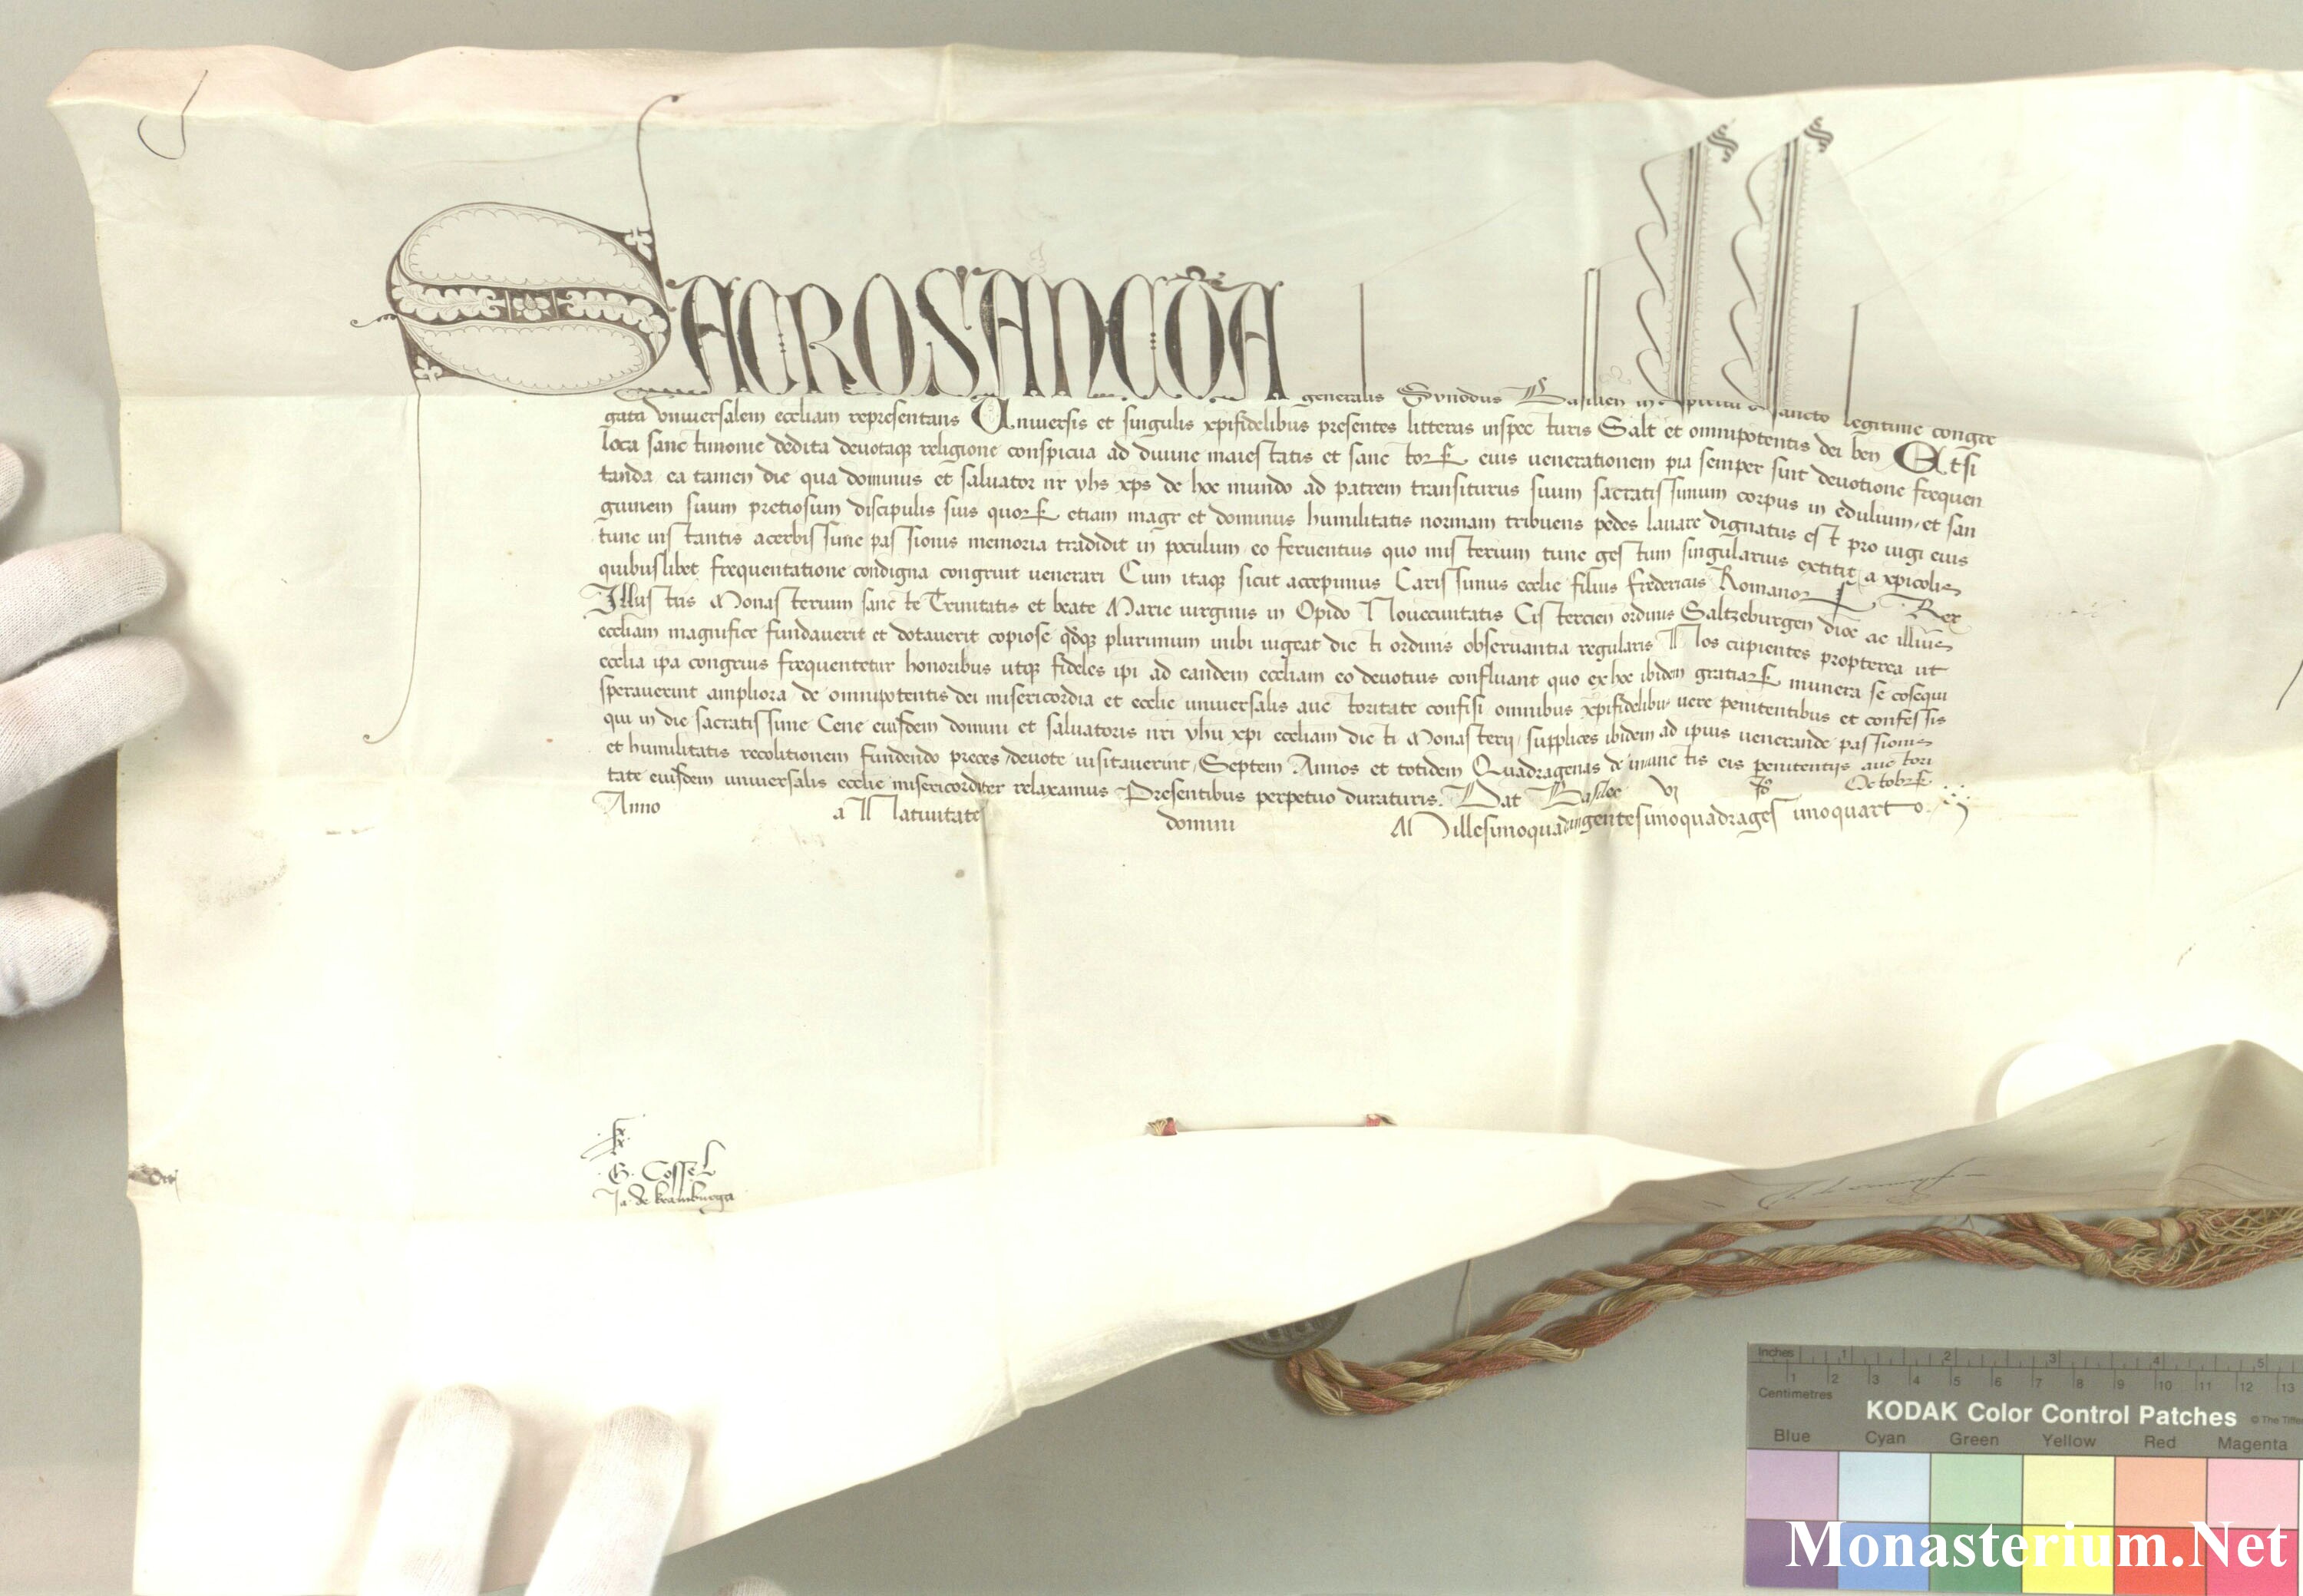 SACROSANCTA generalis Synodus Basilien in spiritu sancto legitime congre
gata vniuersalem eccliam representans Vniuersis et singulis xpifidelibus presentes litteras inspecturis Salt et omnipotentis dei ben Etsi
loca sanctimonie dedita deuotaque religione conspicua ad diuine maiestatis et sanctor eius uenerationem pia semper sint deuotione frequen
tanda ea tamen die qua dominus et saluator nr yhs xps de hoc mundo ad patrem transiturus suum sacratissimum corpus in edulium et san
guinem suum pretiosum discipulis suis quor etiam magr et dominus humilitatis normam tribuens pedes lauare dignatus est pro iugi eius
tunc instantis acerbissime passionis memoria tradidit in poculum eo feruentius quo misterium tunc gestum singularius extitit a xpicolis
quibuslibet frequentatione condigna congruit uenerari Cum itaque sicut accepimus Carissimus ecclie filius fredericus Romanor Rex
Illustris Monasterium sancte Trinitatis et beate Marie uirginis in Opido Nouecivitatis Cistercien ordinis Saltzeburgen dioc ac illius
eccliam magnifice fundauerit et dotauerit copiose qdque plurimum inibi uigeat dicti ordinis obseruantia regularis Nos cupientes propterea ut
ecclia ipa congruis frequentetur honoribus utque fideles ipi ad eandem eccliam eo deuotius confluant quo ex hoc ibidem gratiar munera se cosequi
sperauerint ampliora de omnipotentis dei misericordia et ecclie uniuersalis auctoritate confisi omnibus xpifidelibus uere penitentibus et confessis
qui in die sacratissime Cene eiusdem domini et saluatoris nri yhu xpi eccliam dicti Monasterij supplices ibidem ad ipius uenerande passionis
et humilitatis recolitionem fundendo preces deuote uisitauerint Septem Annos et totidem Quadragenas de iniunctis eis penitentijs auctori
tate eiusdem uniuersalis ecclie misericorditer relaxamus Presentibus perpetuo duraturis. Dat Basilee vj Id Octobr
Anno a Natiuitate domini Millesimoquadringentesimoquadragesimoquarto
G. Cossel
Ja de kramburga
Inches 1 2 3 4 5
1 2 3 4 5 6 7 8 9 10 11 12 13
Centimetres
KODAK Color Control Patches © The Tiffen
Blue Cyan Green Yellow Red Magenta
Monasterium.Net